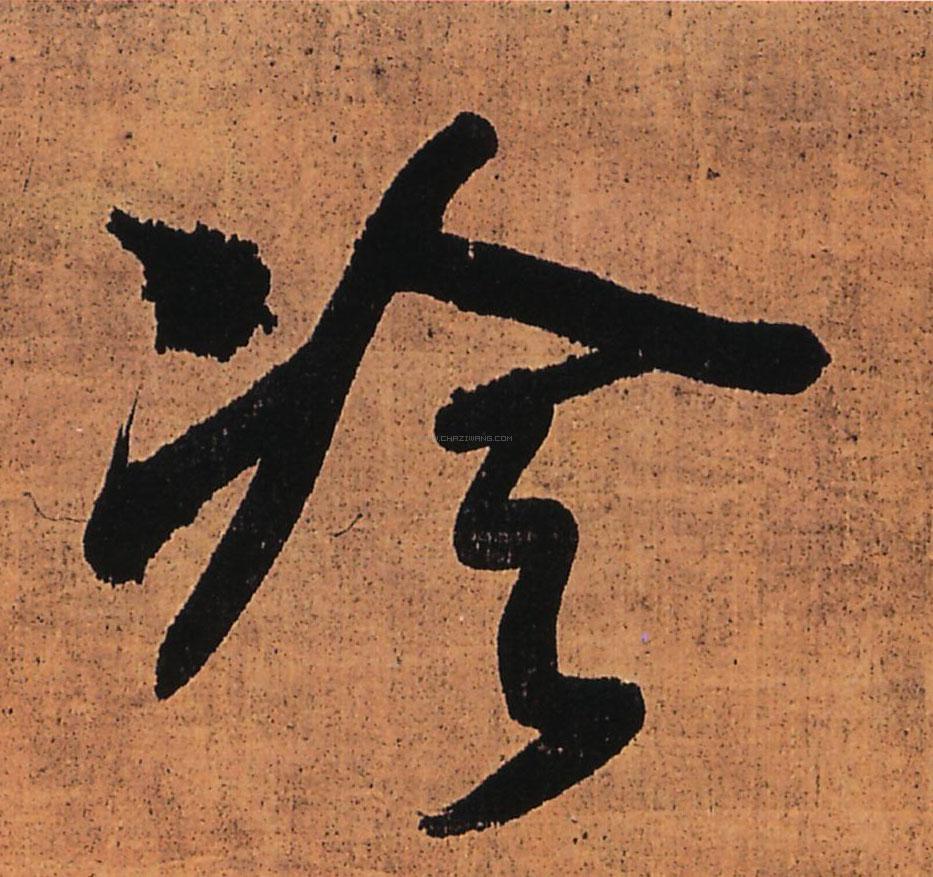 冷
WWW.CHAZIWANG.COM